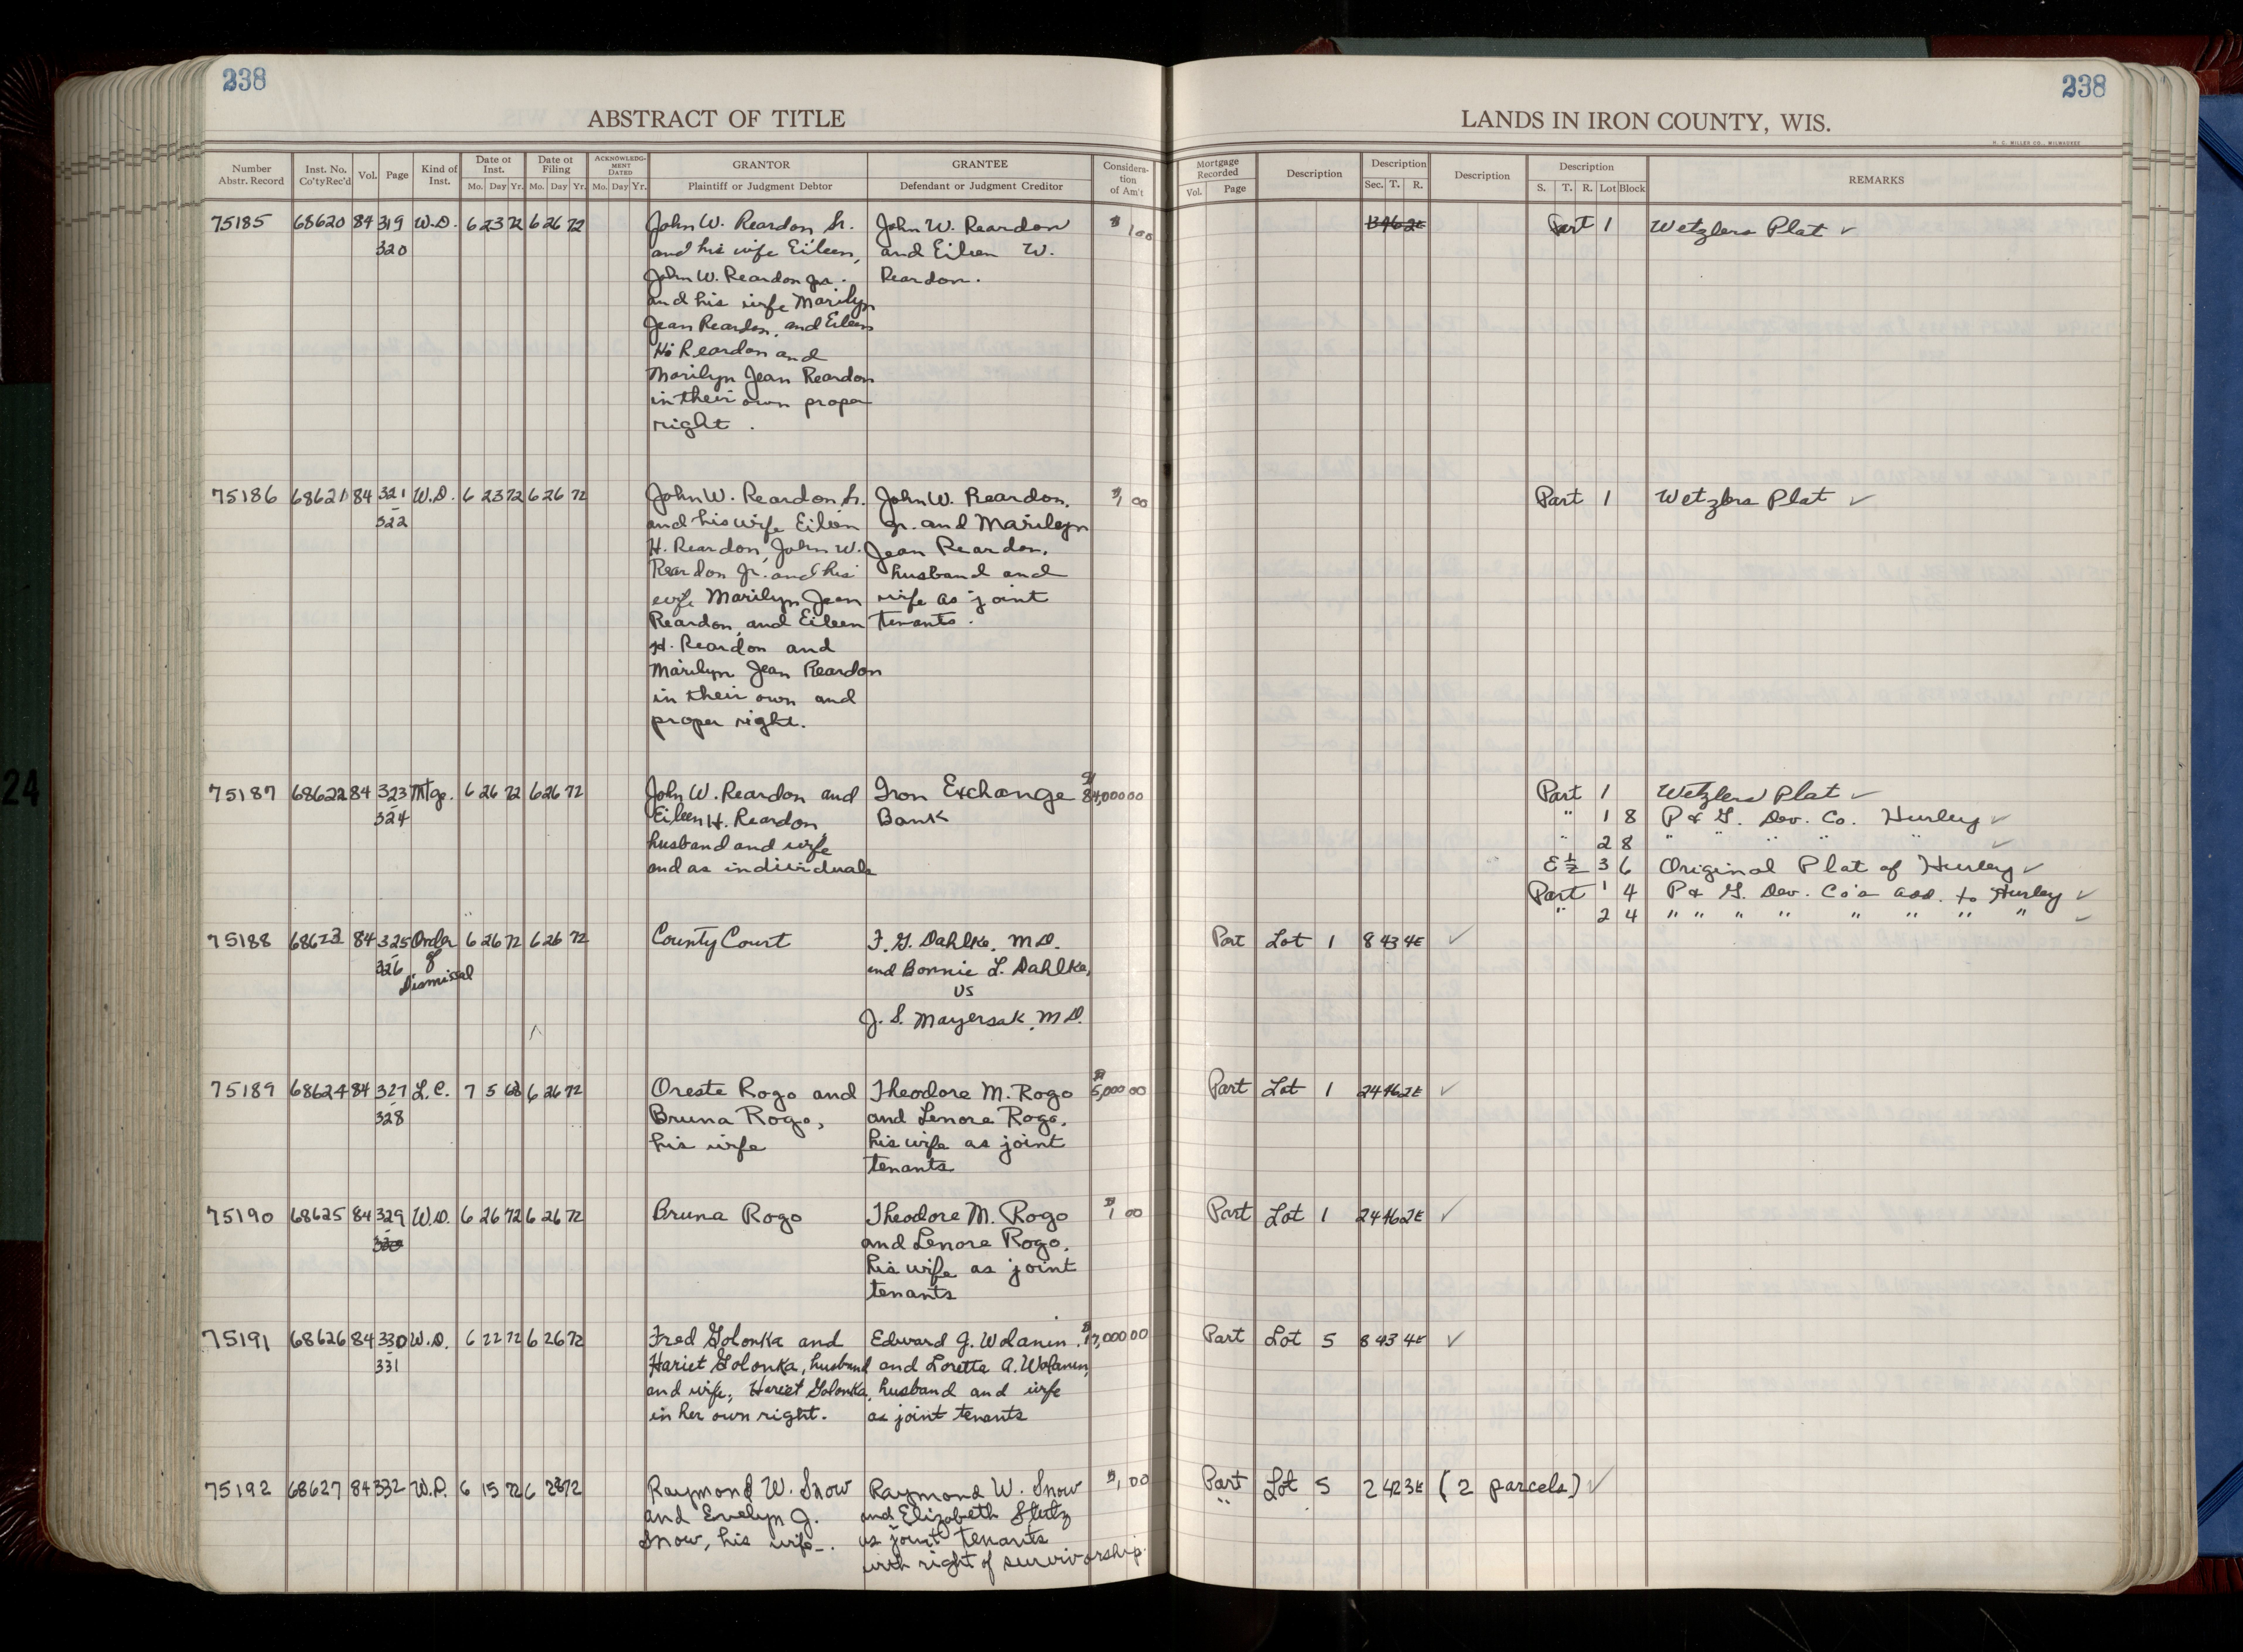 238
238
ABSTRACT OF TITLE
LANDS IN IRON COUNTY, WIS.
H. C. MILLER CO., MILWAUKEE
Number Abstr. Record
Inst. No. Co'ty Rec'd
Vol.
Page
Kind of Inst.
Date of Inst. Mo. Day Yr.
Date of Filing Mo. Day Yr.
ACKNOWLEDG-MENT DATED Mo. Day Yr.
GRANTOR
Plaintiff or Judgment Debtor
GRANTEE
Defendant or Judgment Creditor
Considera-tion of Am't
Mortgage Recorded Vol. Page
Description
Description Sec. T. R.
Description
Description S. T. R. Lot Block
REMARKS
75185 68620 84 319 W.D. 6 23 72 6 26 72 John W. Reardon Sr. John W. Reardon $ 1 00 Part 1 Wetzlers Plat ✓
320 and his wife Eileen, and Eileen W.
John W. Reardon Jr. Reardon.
and his wife Marilyn
Jean Reardon, and Eileen
H. Reardon and
Marilyn Jean Reardon
in their own proper
right.
75186 68621 84 321 W.D. 6 23 72 6 26 72 John W. Reardon Sr. John W. Reardon, $1 00 Part 1 Wetzlers Plat ✓
322 and his wife Eileen Jr. and Marilyn
H. Reardon, John W. Jean Reardon,
Reardon Jr. and his husband and
wife Marilyn Jean wife as joint
Reardon, and Eileen tenants.
H. Reardon and
Marilyn Jean Reardon
in their own and
proper right.
75187 68622 84 323 Mtge. 6 26 72 6 26 72 John W. Reardon and Iron Exchange $ 84,000 00 Part 1 Wetzlers Plat ✓
324 Eileen H. Reardon Bank " 1 8 P & G. Dev. Co. Hurley ✓
husband and wife " 2 8 " " " " " ✓
and as individuals E ½ 3 6 Original Plat of Hurley ✓
Part 1 4 P & G. Dev. Co's add. to Hurley ✓
" 2 4 " " " " " " " " ✓
75188 68623 84 325 Order 6 26 72 6 26 72 County Court F. G. Dahlke, M.D. Part Lot 1 8 43 4E ✓
326 of and Bonnie L. Dahlke,
Dismissal vs
J. S. Mayersak, M.D.
75189 68624 84 327 L.C. 7 5 68 6 26 72 Oreste Rogo and Theodore M. Rogo $ 5,000 00 Part Lot 1 24 46 2E ✓
328 Bruna Rogo, and Lenore Rogo,
his wife his wife as joint
tenants
75190 68625 84 329 W.D. 6 26 72 6 26 72 Bruna Rogo Theodore M. Rogo $ 1 00 Part Lot 1 24 46 2E ✓
330 and Lenore Rogo,
his wife as joint
tenants
75191 68626 84 330 W.D. 6 22 72 6 26 72 Fred Golonka and Edward J. Wolanin Part Lot 5 8 43 4E ✓
331 Hariet Golonka, husband and Loretta A. Wolanin,
and wife, Hariet Golonka, husband and wife
in her own right. as joint tenants
75192 68627 84 332 W.D. 6 15 72 6 28 72 Raymond W. Snow Raymond W. Snow $1,00 Part Lot 5 2 42 3E (2 parcels) ✓
and Evelyn J. and Elizabeth "
Snow, his wife. as joint tenants
with right of survivorship.
24